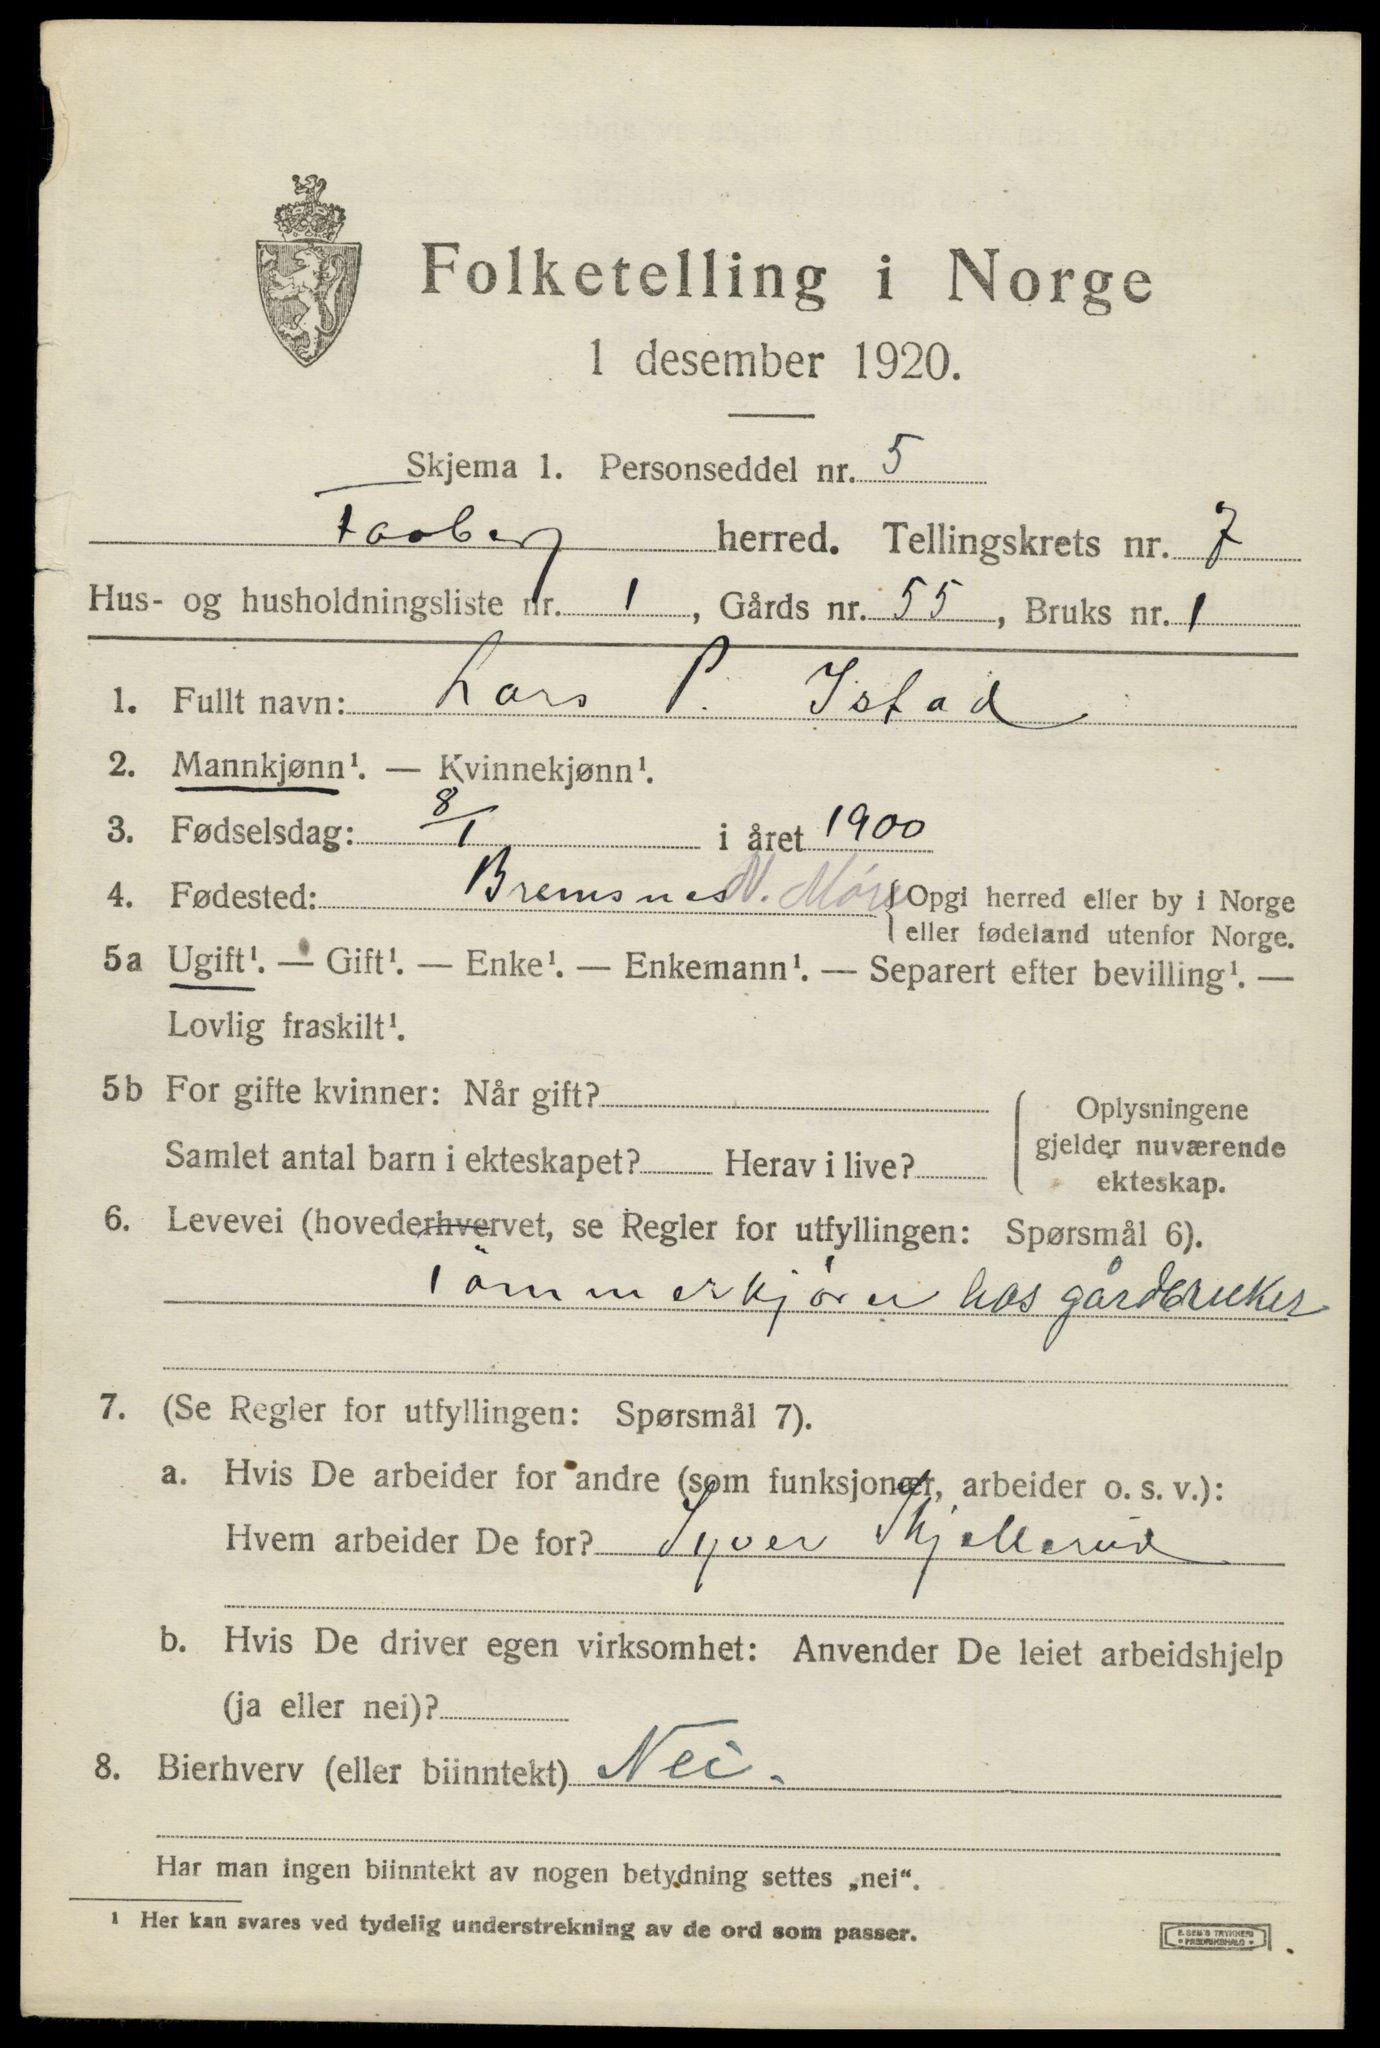 Folketelling i Norge
1 desember 1920.
Skjema 1. Personseddel nr. 5
Faaberg herred. Tellingskrets nr. 7
Hus- og husholdningsliste nr. 1, Gårds nr. 55, Bruks nr. 1
1. Fullt navn: Lars P. Istad
2. Mannkjønn¹. — Kvinnekjønn¹.
3. Fødselsdag: 8/1 i året 1900
4. Fødested: Bremsnes N. Møre { Opgi herred eller by i Norge
eller fødeland utenfor Norge.
5a Ugift¹. — Gift¹. — Enke¹. — Enkemann¹. — Separert efter bevilling¹. —
Lovlig fraskilt¹.
5b For gifte kvinner: Når gift?
Samlet antal barn i ekteskapet? Herav i live?
Oplysningene
gjelder nuværende
ekteskap.
6. Levevei (hovederhvervet, se Regler for utfyllingen: Spørsmål 6).
Tömmerkjörer hos gårdbruker
7. (Se Regler for utfyllingen: Spørsmål 7).
a. Hvis De arbeider for andre (som funksjonær, arbeider o. s. v.):
Hvem arbeider De for? Syver Skjellerud
b. Hvis De driver egen virksomhet: Anvender De leiet arbeidshjelp
(ja eller nei)?
8. Bierhverv (eller biinntekt) Nei.
Har man ingen biinntekt av nogen betydning settes „nei“.
¹ Her kan svares ved tydelig understrekning av de ord som passer.
E. SEM'S TRYKKERI
FREDRIKSHALD